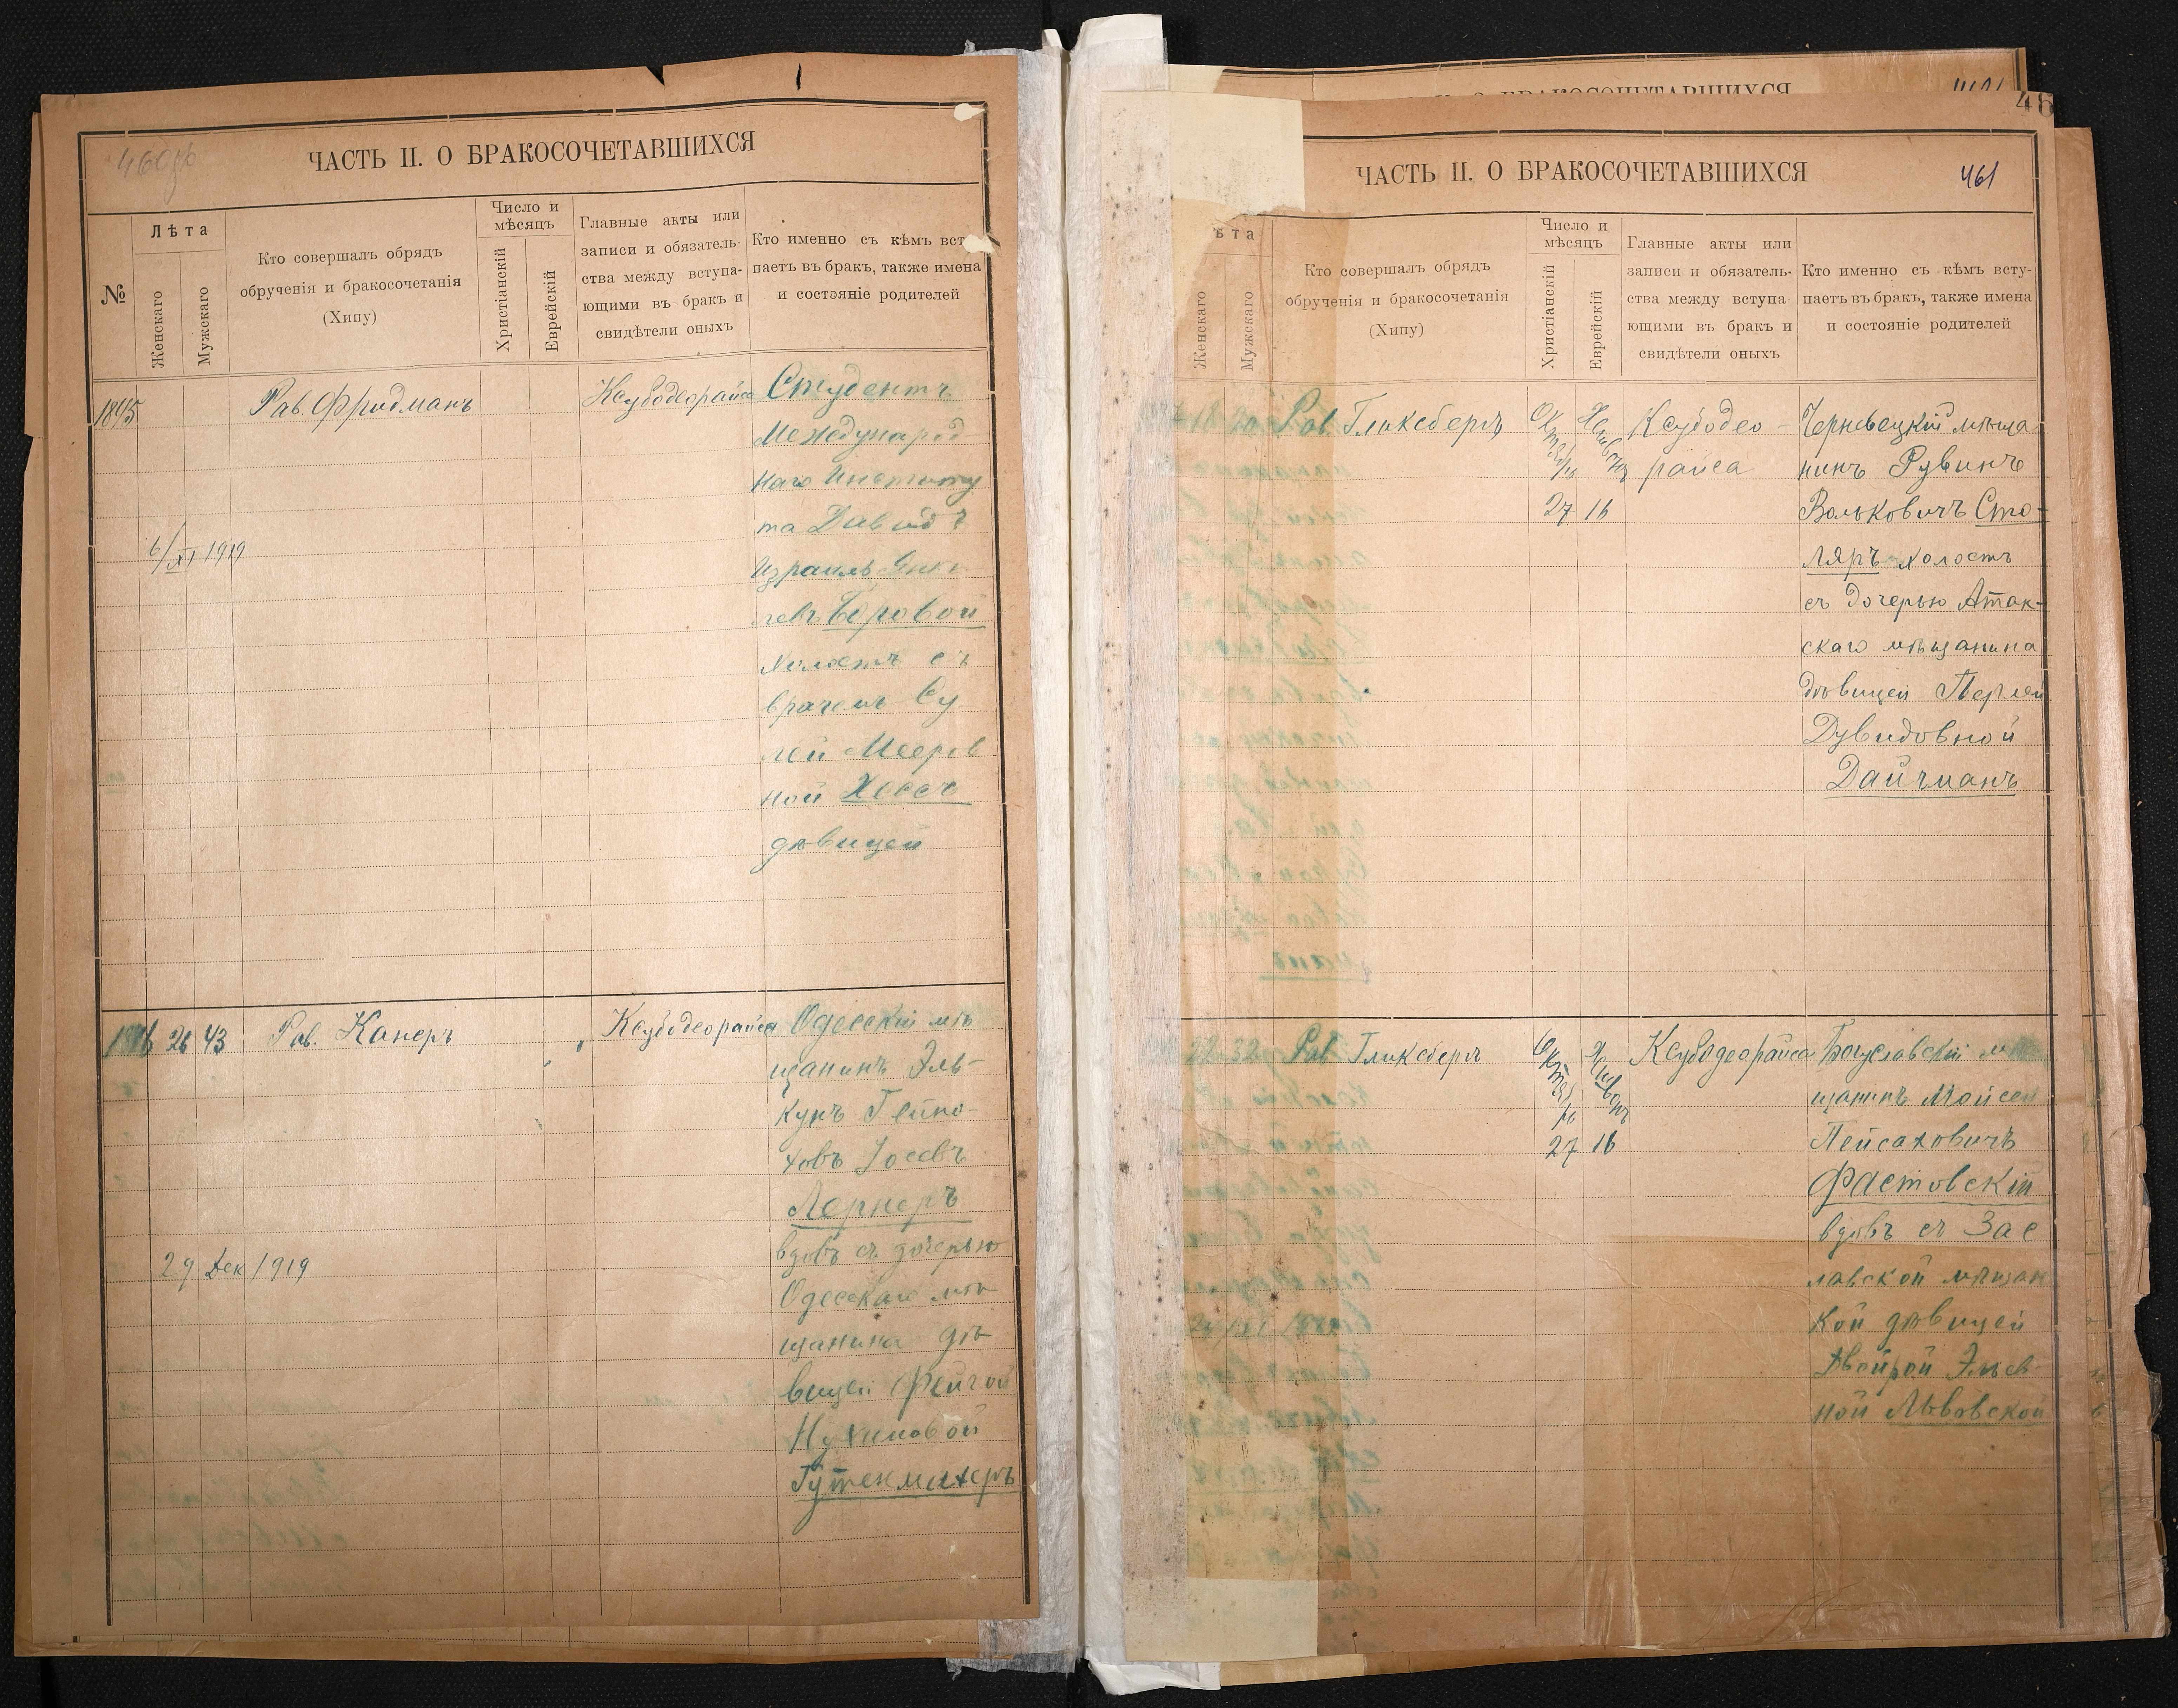 460об
ЧАСТЬ II. О БРАКОСОЧЕТАВШИХСЯ
№
Лѣта
Женскаго
Мужскаго
Кто совершалъ обрядъ
обрученія и бракосочетанія
(Хипу)
Число и
мѣсяцъ
Христіанскій
Еврейскій
Главные акты или
записи и обязатель-
ства между вступа-
ющими въ бракъ и
свидѣтели оныхъ
Кто именно съ кѣмъ вст
паетъ въ бракъ, также имена
и состояніе родителей
1845
Рав. Фридманъ
Ксубодеорайса
Студентъ
Международ
наго Институ
та Давидъ
Израиль Янке
левъ Боровой
холостъ съ
врачемъ Су
лей Мееров
ной Хессъ
дѣвицей
6/XI 1919
26 43
Рав. Канеръ
Ксубодеорайса
Одесскій мѣ
щанинъ Эль-
кунъ Гейно-
ховъ Іосевъ
Лернеръ
вдовъ съ дочерью
Одесскаго мѣ
щанина дѣ
вицей Фейгой
Нухимовой
Гутенмахеръ
29 Дек 1919
ЧАСТЬ II. О БРАКОСОЧЕТАВШИХСЯ
461
ѣта
Женскаго
Мужскаго
Кто совершалъ обрядъ
обрученія и бракосочетанія
(Хипу)
Число и
мѣсяцъ
Христіанскій
Еврейскій
Главные акты или
записи и обязатель-
ства между вступа
ющими въ бракъ и
свидѣтели оныхъ
Кто именно съ кѣмъ всту-
паетъ въ бракъ, также имена
и состояніе родителей
18 20
Рав. Гликсбергъ
Октября
Хешвонъ
27 16
Ксубодео-
райса
Черневецкій мѣща
нинъ Рувинъ
Вольковичъ Сто-
ляръ холостъ
съ дочерью Атак-
скаго мѣщанина
дѣвицей Перлей
Дувидовной
Дайчманъ
22 32
Рав. Гликсбергъ
Октября
Хешвонъ
27 16
Ксубодеорайса
Богуславскій мѣ
щанинъ Мойсей
Пейсаховичъ
Фастовскій
вдовъ съ Зас
лавской мѣщан
кой дѣвицей
Двейрой Эльев
ной Львовской